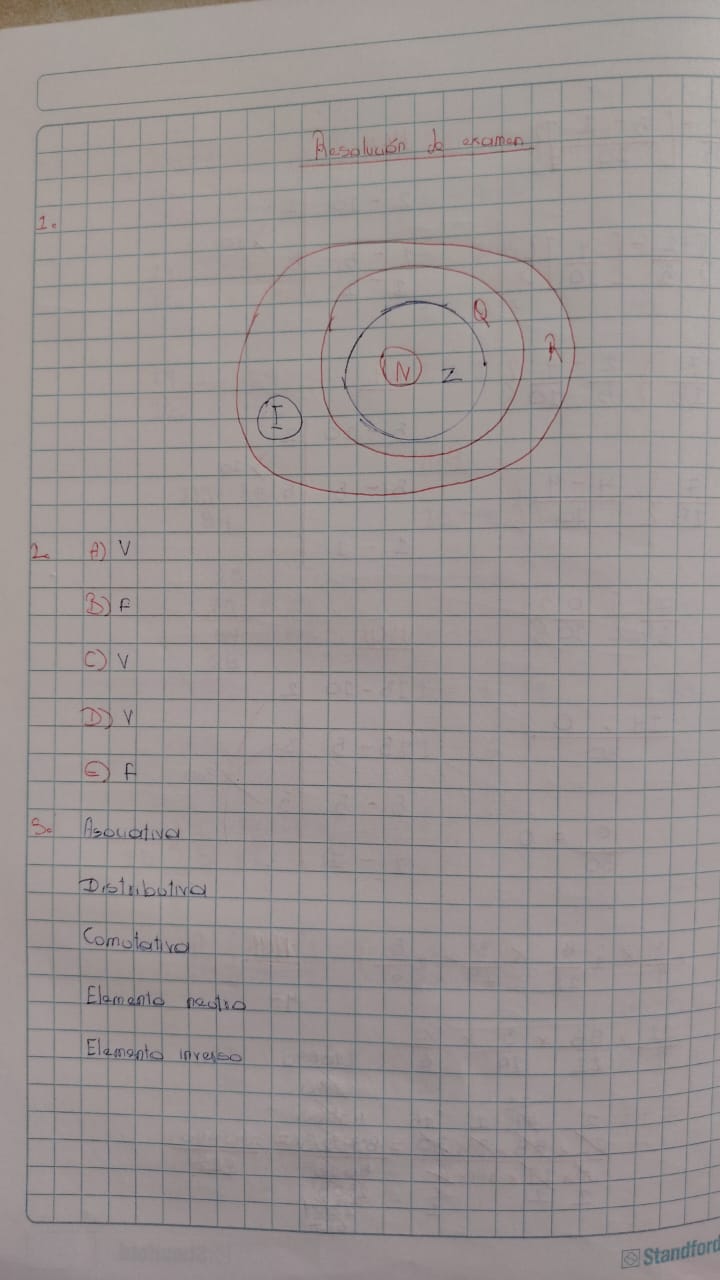 Resolución de examen
1.
Q
R
N
Z
I
2. A) V
B) F
C) V
D) V
E) F
3. Asociativa
Distributiva
Comutativa
Elemento neutro
Elemento inverso
Standford